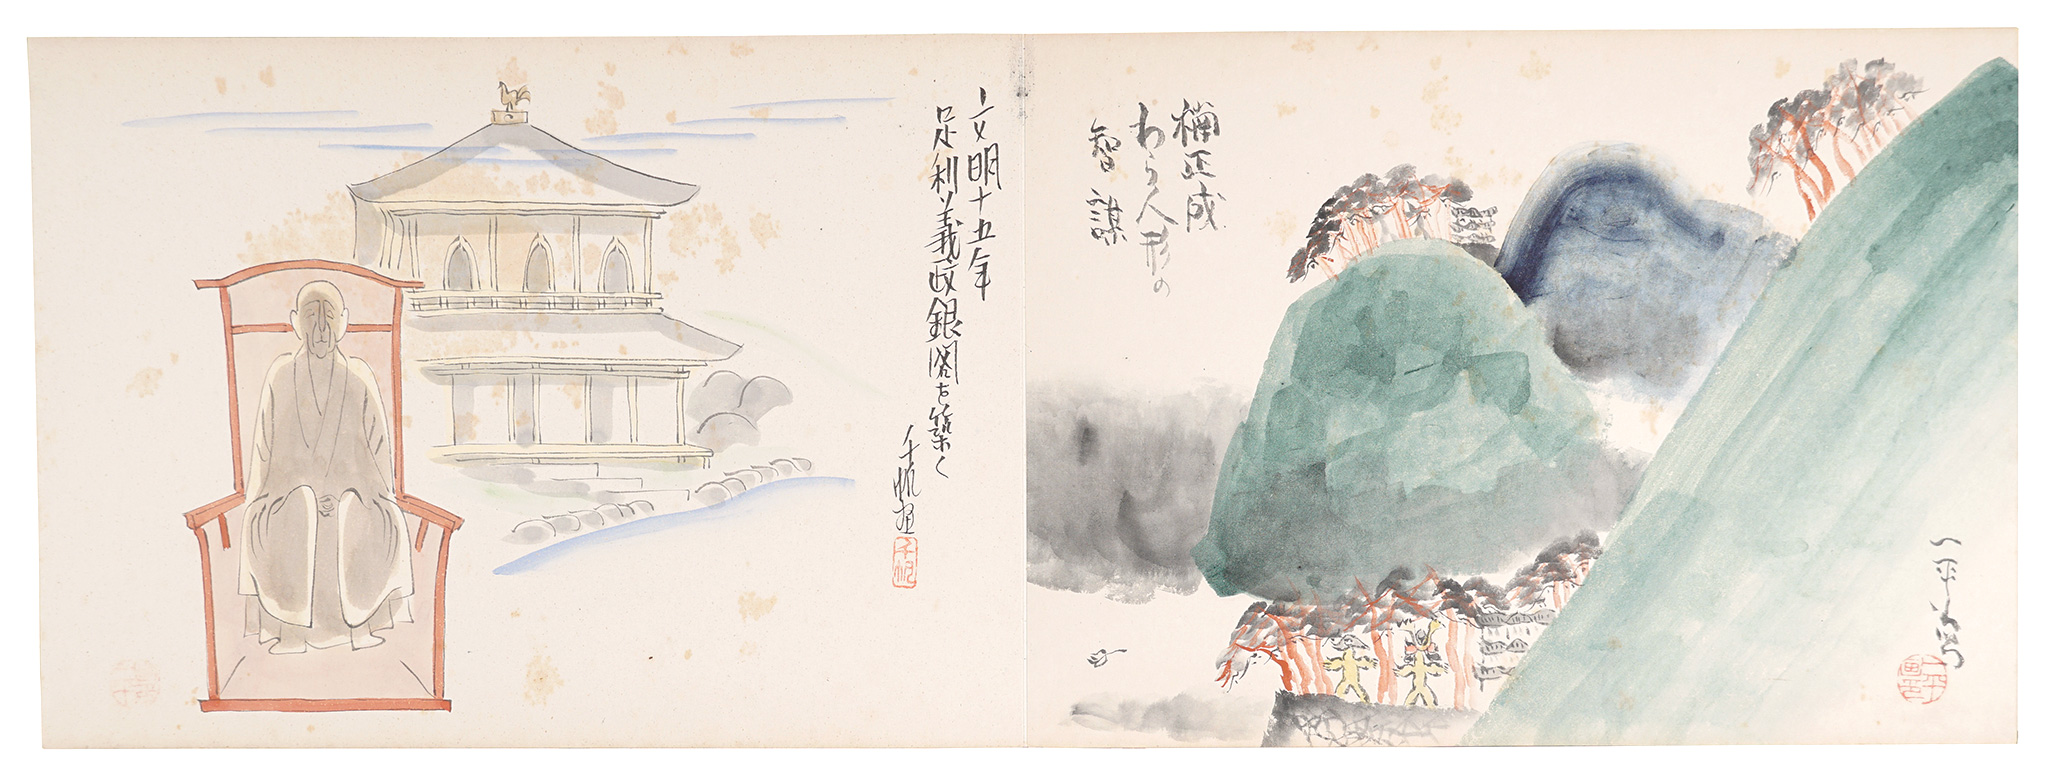 楠正成
わら人形の
智謀
一平画
一平画印
文明十五年
足利義政銀閣を築く
千帆画
千帆